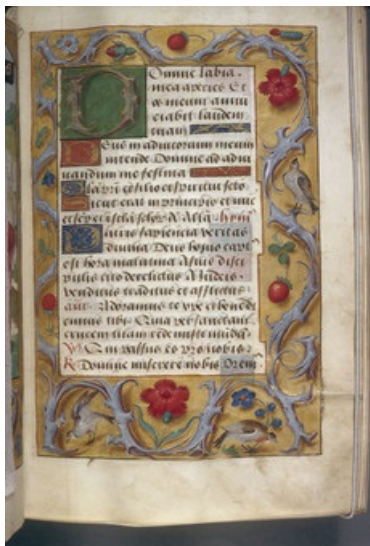 Domine labia
mea aperies Et
os meum annu
ciabit laudem
tuam
Deus in adiutorium meum
intende Domine ad adiu
uandum me festina
Gloria et filio et spiritui scto
Sicut erat in principio et nunc
et semper et in scla sclor
Patris sapiencia veritas
diuina Deus homo capt
est hora matutina A suis disci
pulis cito derelictus A Iudeis
venditus traditus et afflictus
Adoramus te xpe et benedi
cimus tibi Quia per sanctam
crucem tuam redemisti mundu
Qui passus es pro nobis
Domine miserere nobis Orem